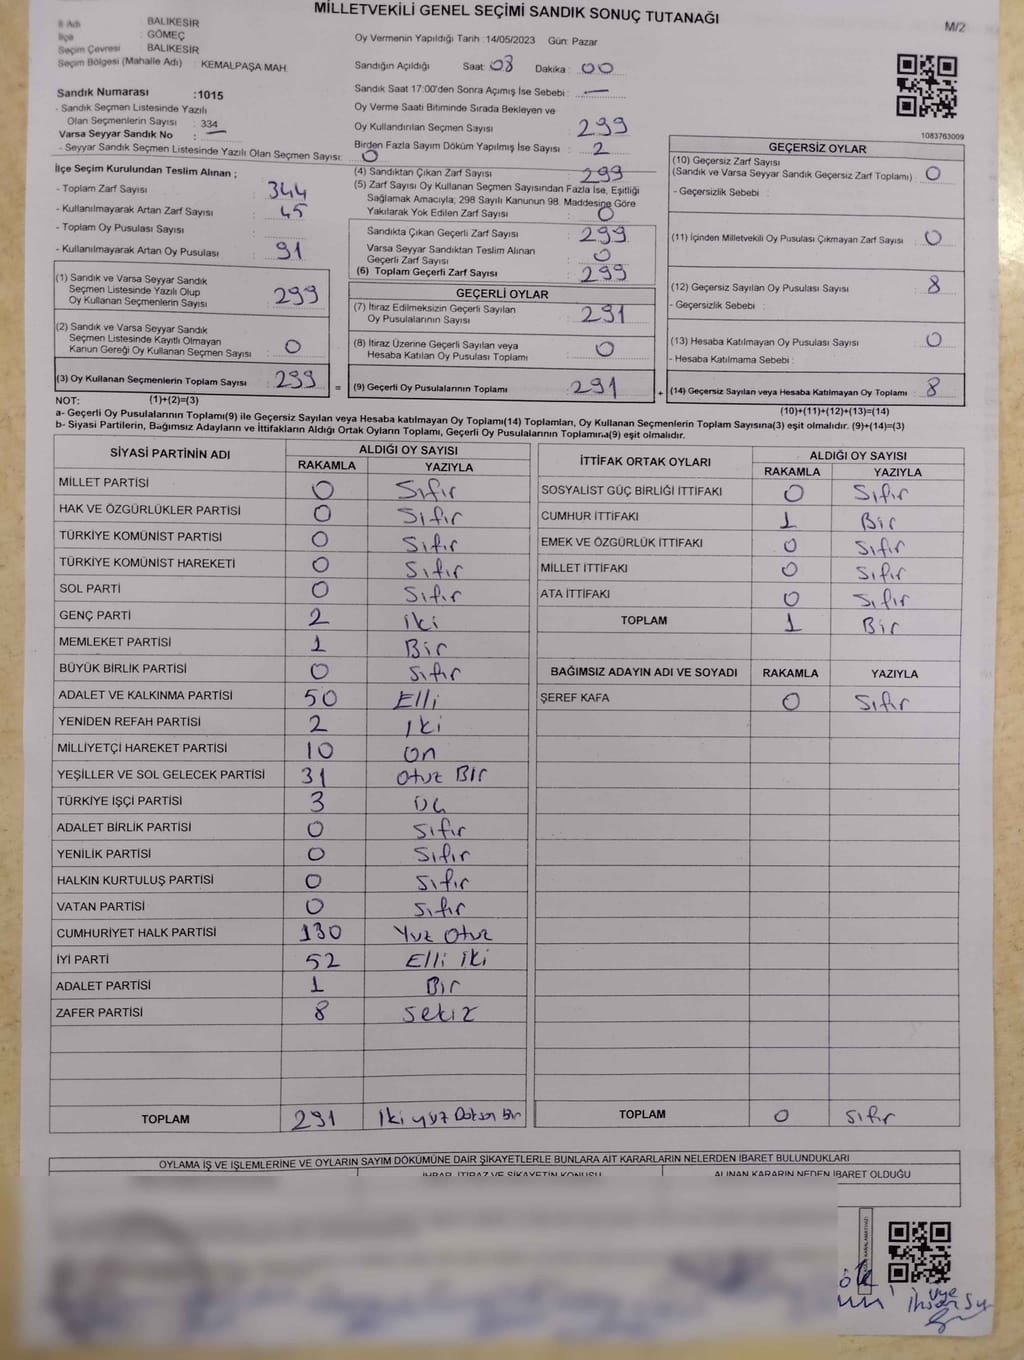 MİLLETVEKİLİ GENEL SEÇİMİ SANDIK SONUÇ TUTANAĞI
M/2
İl Adı : BALIKESİR
İlçe : GÖMEÇ
Seçim Çevresi : BALIKESİR
Seçim Bölgesi (Mahalle Adı) : KEMALPAŞA MAH.
Oy Vermenin Yapıldığı Tarih :14/05/2023 Gün: Pazar
Sandığın Açıldığı Saat: 08 Dakika : 00
Sandık Saat 17:00'den Sonra Açımış İse Sebebi : —
Oy Verme Saati Bitiminde Sırada Bekleyen ve
Oy Kullandırılan Seçmen Sayısı : 299
Birden Fazla Sayım Döküm Yapılmış İse Sayısı : 2
Sandık Numarası :1015
- Sandık Seçmen Listesinde Yazılı
Olan Seçmenlerin Sayısı : 334
Varsa Seyyar Sandık No : —
- Seyyar Sandık Seçmen Listesinde Yazılı Olan Seçmen Sayısı: 0
1083763009
İlçe Seçim Kurulundan Teslim Alınan ;
- Toplam Zarf Sayısı : 344
- Kullanılmayarak Artan Zarf Sayısı : 45
- Toplam Oy Pusulası Sayısı :
- Kullanılmayarak Artan Oy Pusulası : 91
(1) Sandık ve Varsa Seyyar Sandık
Seçmen Listesinde Yazılı Olup
Oy Kullanan Seçmenlerin Sayısı : 299
(2) Sandık ve Varsa Seyyar Sandık
Seçmen Listesinde Kayıtlı Olmayan
Kanun Gereği Oy Kullanan Seçmen Sayısı : 0
(3) Oy Kullanan Seçmenlerin Toplam Sayısı : 299
(4) Sandıktan Çıkan Zarf Sayısı : 299
(5) Zarf Sayısı Oy Kullanan Seçmen Sayısından Fazla İse, Eşitliği
Sağlamak Amacıyla; 298 Sayılı Kanunun 98. Maddesine Göre
Yakılarak Yok Edilen Zarf Sayısı : 0
Sandıkta Çıkan Geçerli Zarf Sayısı : 299
Varsa Seyyar Sandıktan Teslim Alınan
Geçerli Zarf Sayısı : 0
(6) Toplam Geçerli Zarf Sayısı : 299
GEÇERLİ OYLAR
(7) İtiraz Edilmeksizin Geçerli Sayılan
Oy Pusulalarının Sayısı : 291
(8) İtiraz Üzerine Geçerli Sayılan veya
Hesaba Katılan Oy Pusulası Toplamı : 0
= (9) Geçerli Oy Pusulalarının Toplamı 291
GEÇERSİZ OYLAR
(10) Geçersiz Zarf Sayısı
(Sandık ve Varsa Seyyar Sandık Geçersiz Zarf Toplamı) : 0
- Geçersizlik Sebebi :
(11) İçinden Milletvekili Oy Pusulası Çıkmayan Zarf Sayısı : 0
(12) Geçersiz Sayılan Oy Pusulası Sayısı : 8
- Geçersizlik Sebebi :
(13) Hesaba Katılmayan Oy Pusulası Sayısı : 0
- Hesaba Katılmama Sebebi :
+ (14) Geçersiz Sayılan veya Hesaba Katılmayan Oy Toplamı : 8
NOT: (1)+(2)=(3)
(10)+(11)+(12)+(13)=(14)
a- Geçerli Oy Pusulalarının Toplamı(9) ile Geçersiz Sayılan veya Hesaba katılmayan Oy Toplamı(14) Toplamları, Oy Kullanan Seçmenlerin Toplam Sayısına(3) eşit olmalıdır. (9)+(14)=(3)
b- Siyasi Partilerin, Bağımsız Adayların ve İttifakların Aldığı Ortak Oyların Toplamı, Geçerli Oy Pusulalarının Toplamına(9) eşit olmalıdır.
SİYASİ PARTİNİN ADI ALDIĞI OY SAYISI
RAKAMLA YAZIYLA
MİLLET PARTİSİ 0 Sıfır
HAK VE ÖZGÜRLÜKLER PARTİSİ 0 Sıfır
TÜRKİYE KOMÜNİST PARTİSİ 0 Sıfır
TÜRKİYE KOMÜNİST HAREKETİ 0 Sıfır
SOL PARTİ 0 Sıfır
GENÇ PARTİ 2 iki
MEMLEKET PARTİSİ 1 Bir
BÜYÜK BİRLİK PARTİSİ 0 Sıfır
ADALET VE KALKINMA PARTİSİ 50 Elli
YENİDEN REFAH PARTİSİ 2 İki
MİLLİYETÇİ HAREKET PARTİSİ 10 On
YEŞİLLER VE SOL GELECEK PARTİSİ 31 Otuz Bir
TÜRKİYE İŞÇİ PARTİSİ 3 Üç
ADALET BİRLİK PARTİSİ 0 Sıfır
YENİLİK PARTİSİ 0 Sıfır
HALKIN KURTULUŞ PARTİSİ 0 Sıfır
VATAN PARTİSİ 0 Sıfır
CUMHURİYET HALK PARTİSİ 130 Yuz Otuz
İYİ PARTİ 52 Elli iki
ADALET PARTİSİ 1 Bir
ZAFER PARTİSİ 8 Sekiz
TOPLAM 291 İki yüz Doksan Bir
İTTİFAK ORTAK OYLARI ALDIĞI OY SAYISI
RAKAMLA YAZIYLA
SOSYALİST GÜÇ BİRLİĞİ İTTİFAKI 0 Sıfır
CUMHUR İTTİFAKI 1 Bir
EMEK VE ÖZGÜRLÜK İTTİFAKI 0 Sıfır
MİLLET İTTİFAKI 0 Sıfır
ATA İTTİFAKI 0 Sıfır
TOPLAM 1 Bir
BAĞIMSIZ ADAYIN ADI VE SOYADI RAKAMLA YAZIYLA
ŞEREF KAFA 0 Sıfır
TOPLAM 0 Sıfır
OYLAMA İŞ VE İŞLEMLERİNE VE OYLARIN SAYIM DÖKÜMÜNE DAİR ŞİKAYETLERLE BUNLARA AİT KARARLARIN NELERDEN İBARET BULUNDUKLARI
İHBAR, İTİRAZ VE ŞİKAYETİN KONUSU ALINAN KARARIN NEDEN İBARET OLDUĞU
üye